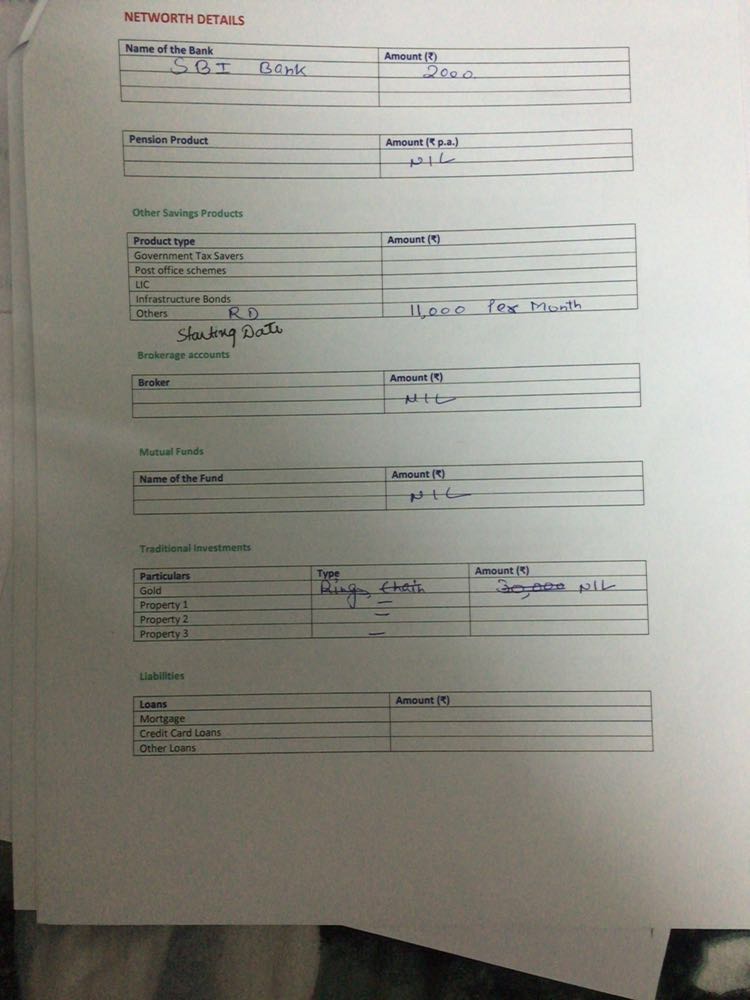 NETWORTH DETAILS
Name of the Bank Amount (₹)
SBI Bank 2000
Pension Product Amount (₹ p.a.)
NIL
Other Savings Products
Product type Amount (₹)
Government Tax Savers
Post office schemes
LIC
Infrastructure Bonds
Others RD 11,000 Per Month
Starting Date
Brokerage accounts
Broker Amount (₹)
NIL
Mutual Funds
Name of the Fund Amount (₹)
NIL
Traditional Investments
Particulars Type Amount (₹)
Gold Ring, Chain 30,000 NIL
Property 1 =
Property 2 =
Property 3 —
Liabilities
Loans Amount (₹)
Mortgage
Credit Card Loans
Other Loans